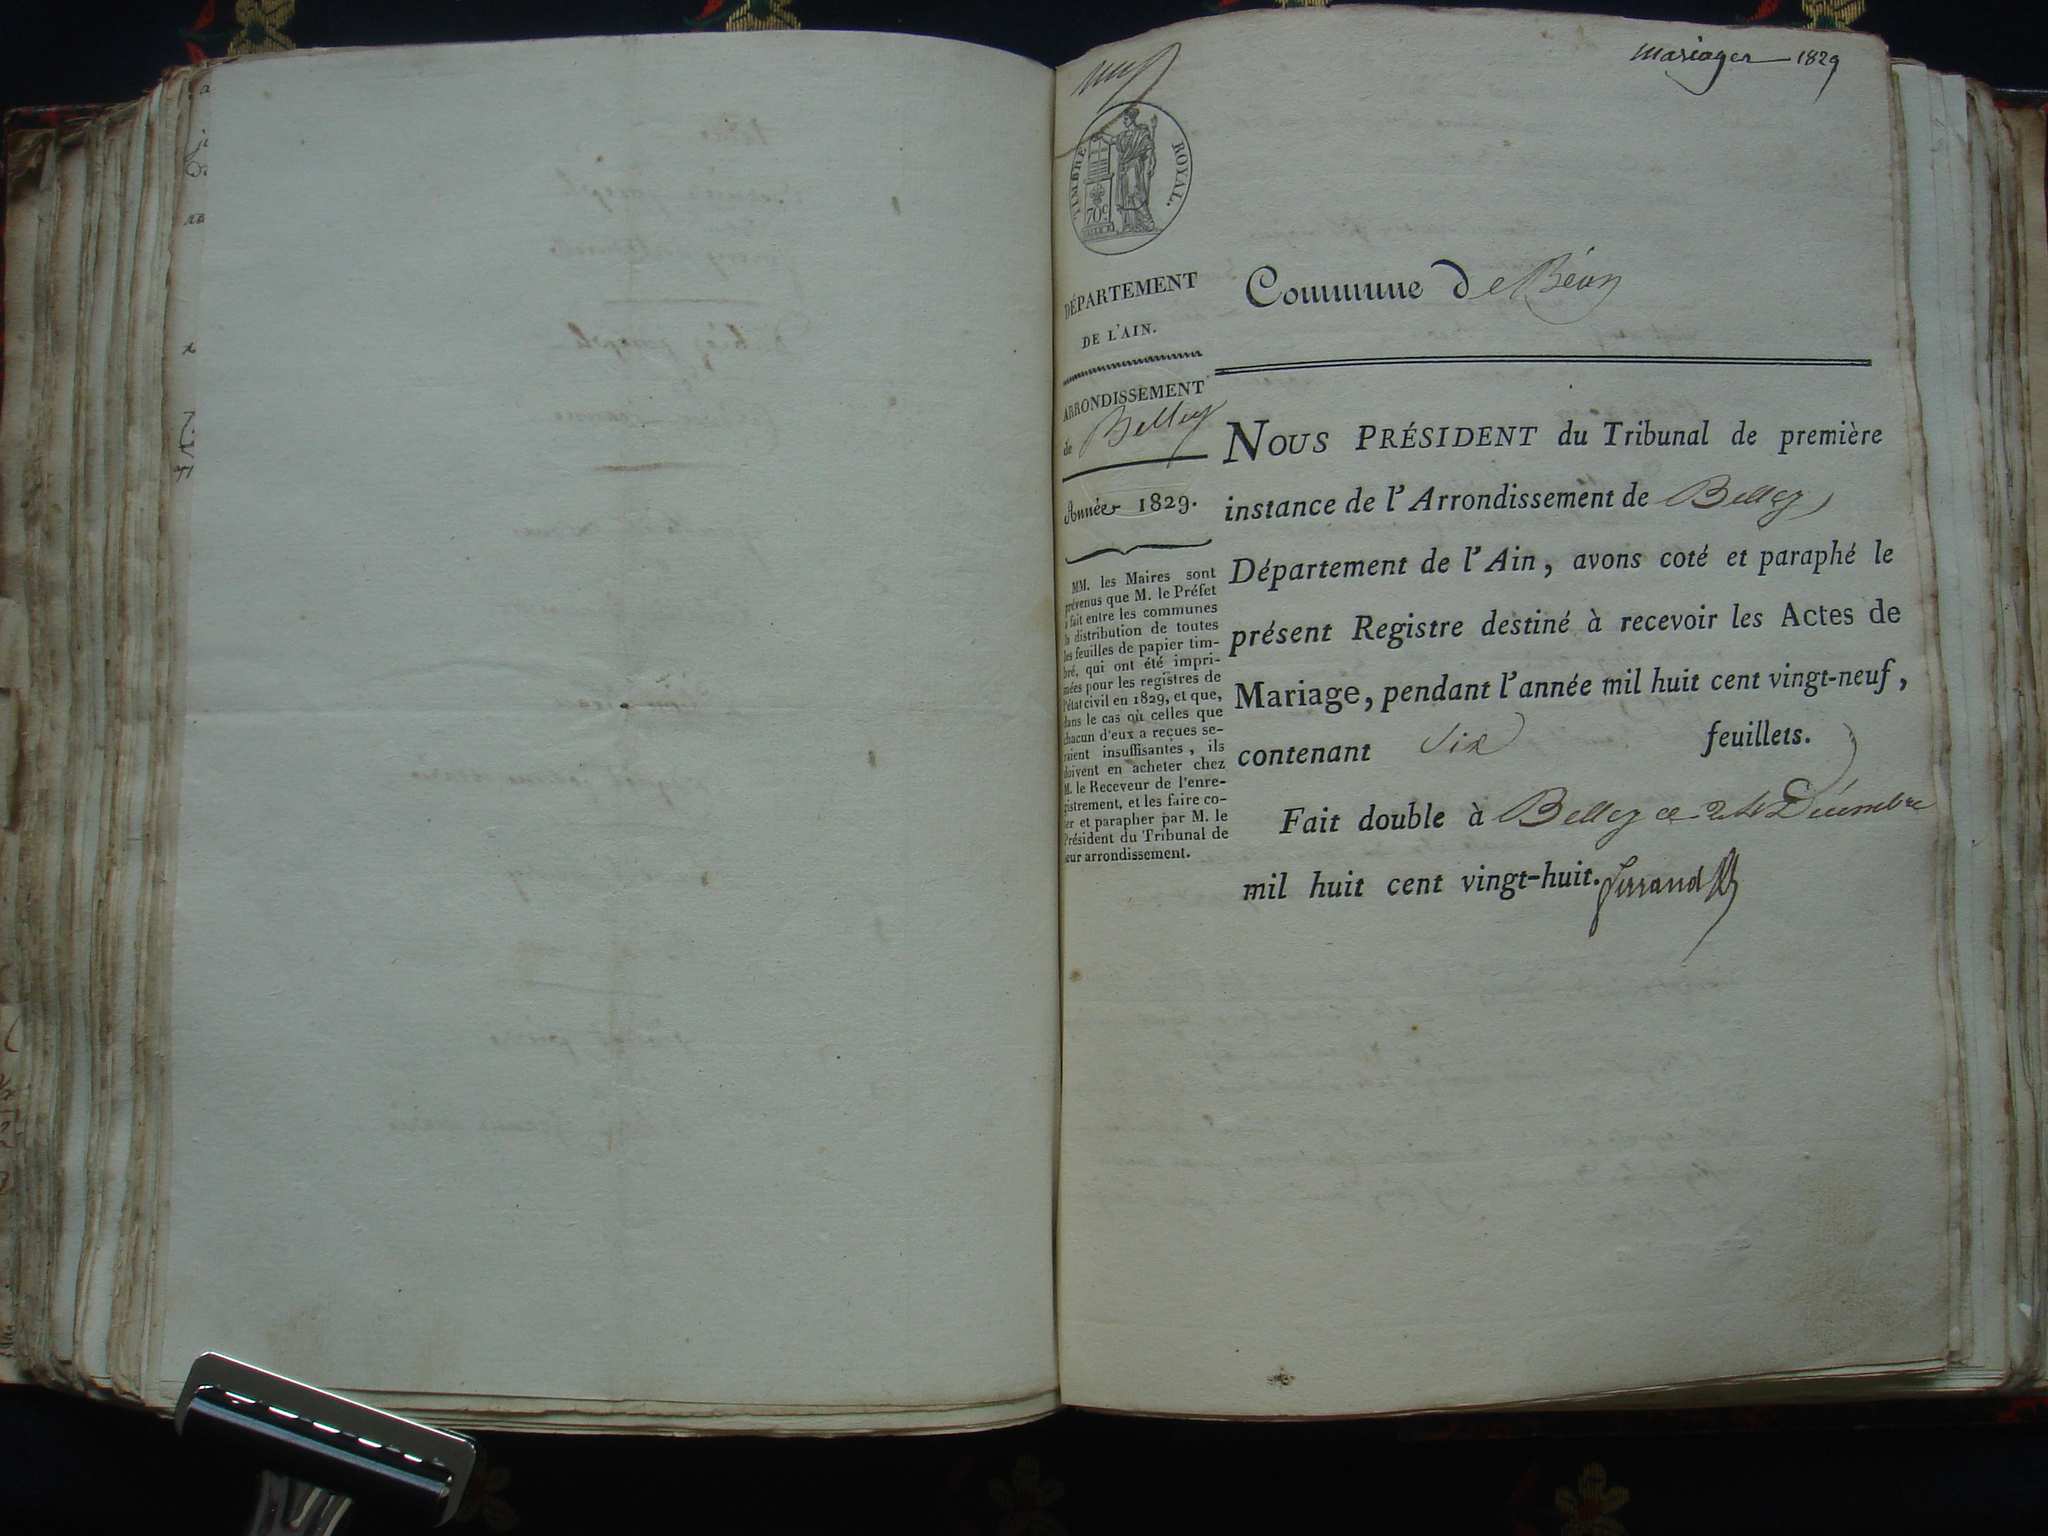 mariages 1829
TIMBRE ROYAL.
70 c
DÉPARTEMENT
DE L'AIN.
ARRONDISSEMENT
de Belley
Année 1829.
MM. les Maires sont
prévenus que M. le Préfet
a fait entre les communes
la distribution de toutes
les feuilles de papier tim-
bré, qui ont été impri-
mées pour les registres de
l'état civil en 1829, et que,
dans le cas où celles que
chacun d'eux a reçues se-
raient insuffisantes, ils
doivent en acheter chez
M. le Receveur de l'enre-
gistrement, et les faire co-
ter et parapher par M. le
Président du Tribunal de
leur arrondissement.
Commune De Béon
NOUS PRÉSIDENT du Tribunal de première
instance de l'Arrondissement de Belley
Département de l'Ain, avons coté et paraphé le
présent Registre destiné à recevoir les Actes de
Mariage, pendant l'année mil huit cent vingt-neuf,
contenant Six feuillets.
Fait double à Belley ce 24 Décembre
mil huit cent vingt-huit.